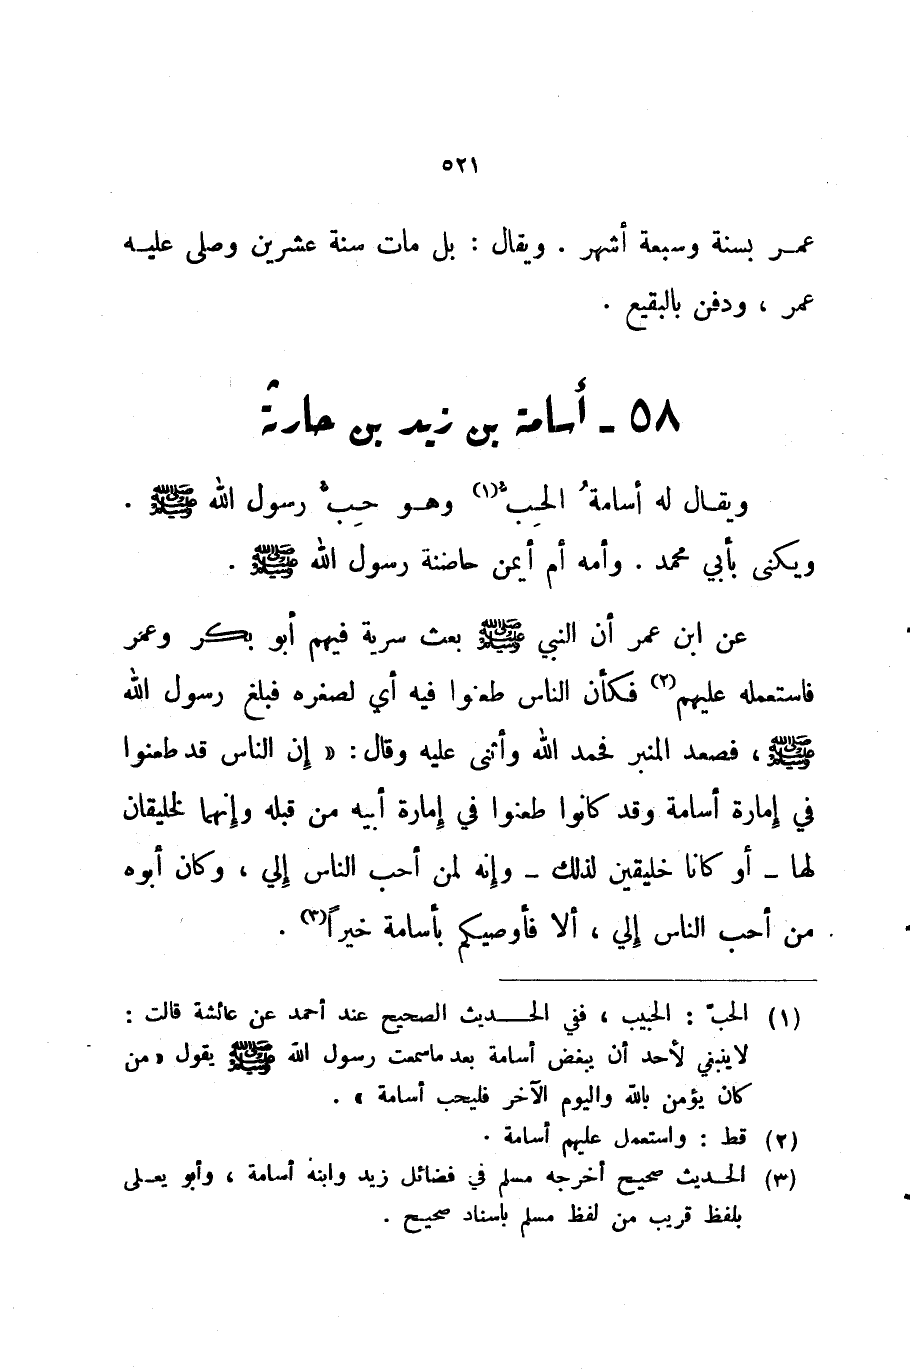 ٥٢١
عمـر بسنة وسبعة أشهر . ويقال : بل مات سنة عشرين وصلى عليـه
عمر ، ودفن بالبقيع .
٥٨ ـ أسامة بن زيد بن حارثة
ويقـال له أسامةُ الحِبّ(١) وهـو حِبّ رسول الله ﷺ .
ويكنى بأبي محمد . وأمه أم أيمن حاضنة رسول الله ﷺ .
عن ابن عمر أن النبي ﷺ بعث سرية فيهم أبو بكر وعمر
فاستعمله عليهم(٢) فكأن الناس طعنوا فيه أي لصغره فبلغ رسول الله
ﷺ ، فصعد المنبر فحمد الله وأثنى عليه وقال : « إن الناس قد طعنوا
في إمارة أسامة وقد كانوا طعنوا في إمارة أبيه من قبله وإنهما لخليقان
لها ـ أو كانا خليقين لذلك ـ وإنه لمن أحب الناس إلي ، وكان أبوه
من أحب الناس إلي ، ألا فأوصيكم بأسامة خيراً(٣) .
(١) الحبّ : الحبيب ، ففي الحـــديث الصحيح عند أحمد عن عائشة قالت :
لاينبغي لأحد أن يبغض أسامة بعد ماسمعت رسول الله ﷺ يقول « من
كان يؤمن بالله واليوم الآخر فليحب أسامة » .
(٢) قط : واستعمل عليهم أسامة .
(٣) الحـديث صحيح أخرجه مسلم في فضائل زيد وابنه أسامة ، وأبو يعـلى
بلفظ قريب من لفظ مسلم بأسناد صحيح .